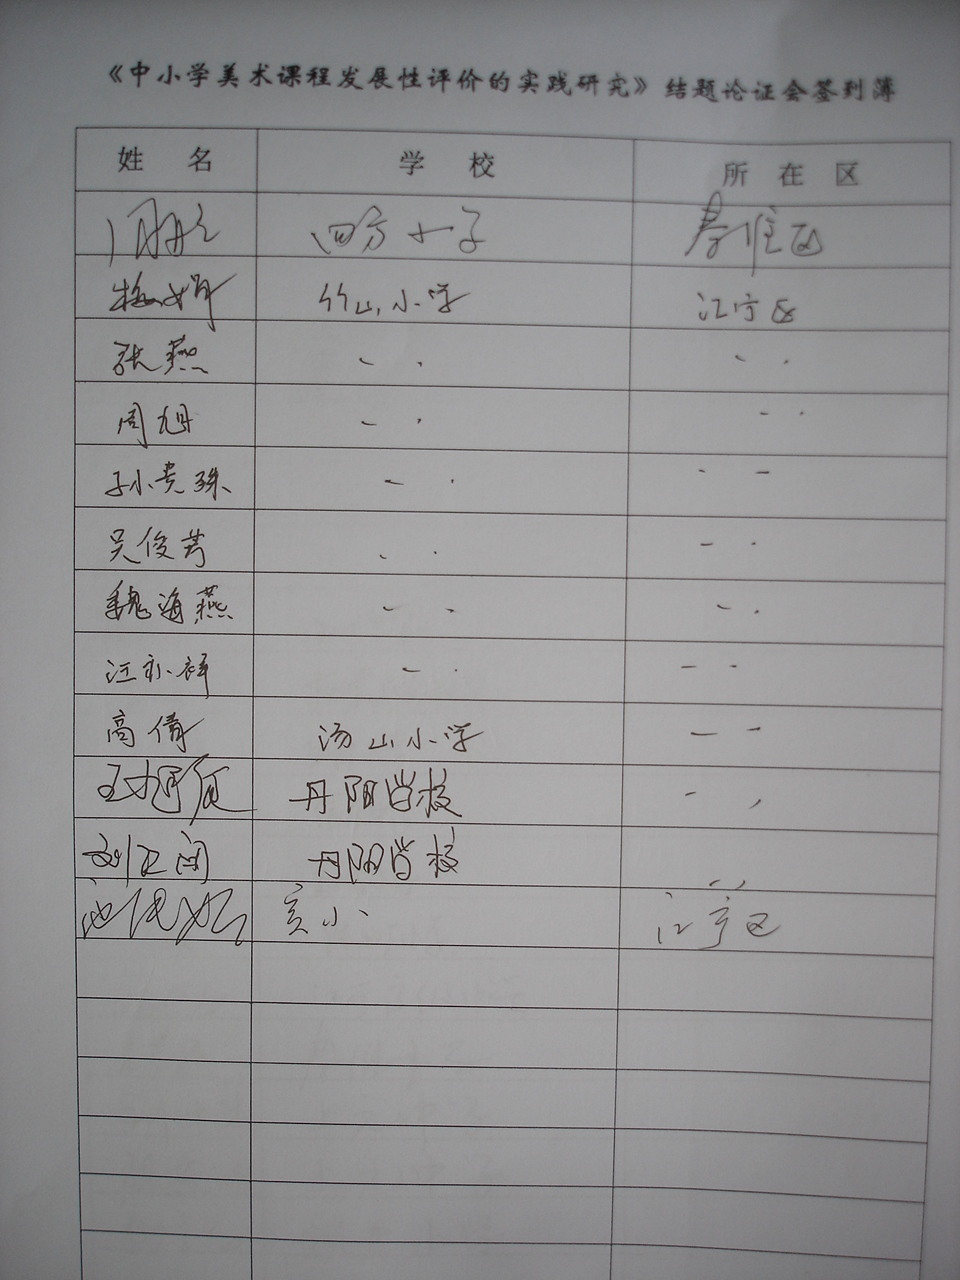 《中小学美术课程发展性评价的实践研究》结题论证会签到簿
姓 名 学 校 所 在 区
四方小学 秦淮区
梅娟 竹山小学 江宁区
张燕 — · — ·
周旭 — · — ·
孙贵珠 — · - —
吴俊芳 - · — ·
魏海燕 — - — ·
汪永祥 — · — -
高倩 汤山小学 — —
王旭 丹阳学校 - ,
刘卫闵 丹阳学校 - ,
池 亥小 江宁区